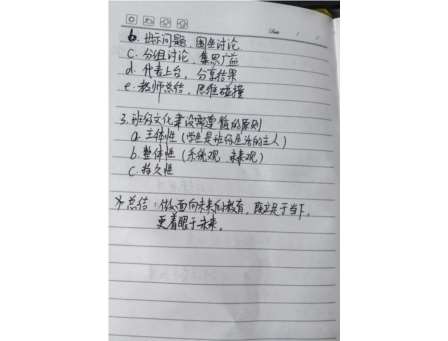 b. 提示问题，围坐讨论
c. 分组讨论，集思广益
d. 代表上台，分享结果
e. 教师总结，思维碰撞
3. 班级文化建设需遵循的原则
a. 主体性（学生是班级生活的主人）
b. 整体性（系统观 未来观）
c. 持久性
总结：做面向未来的教育，既立足于当下，
更着眼于未来。